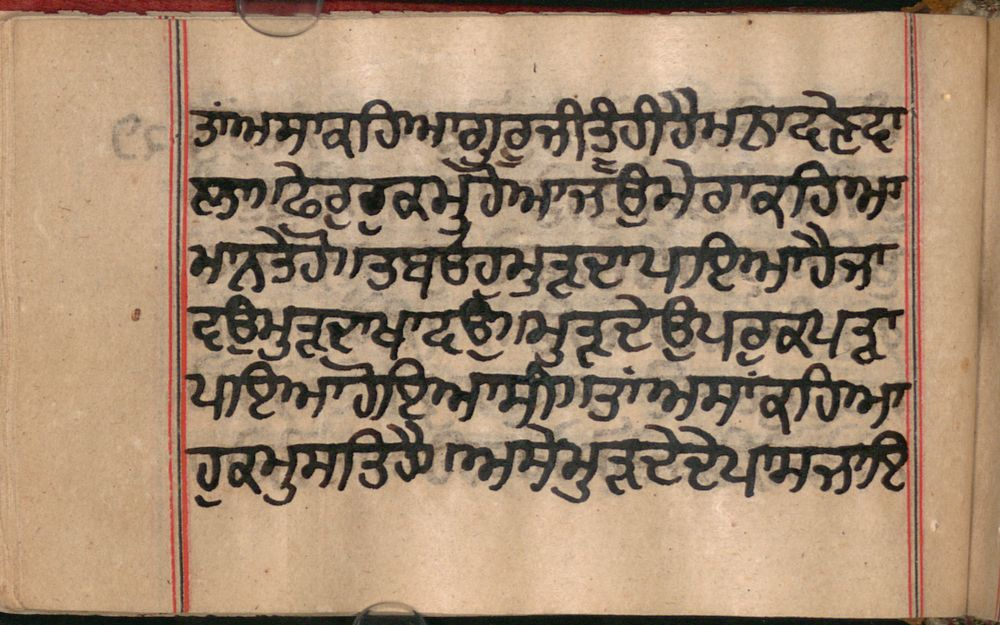 ਤਾਂਅਸਾਕਹਿਆਗੁਰੂਜੀਤੂੰਹੀਹੈ
ਲਾ॥ਫੇਰੁਹੁਕਮੁਹੋਆਜਉਮੇਰਾਕਹਿਆ
ਮਾਨਤੇਹੋ॥ਤਬਓਹੁਮੁੜਦਾਪਾਇਆਹੈਜਾ
ਦਉਮੁੜਦਾਖਾਦਉ॥ਮੁੜਦੇਉਪਰੁਕਪੜਾ
ਪਾਇਆਹੋਇਆਸੀ॥ਤਾਂਅਸਾਂਕਹਿਆ
ਹੁਕਮੁਸਤਿਹੈ।ਅਸੇਮੁੜਦੇਦੇਪਾਸਜਾਇ